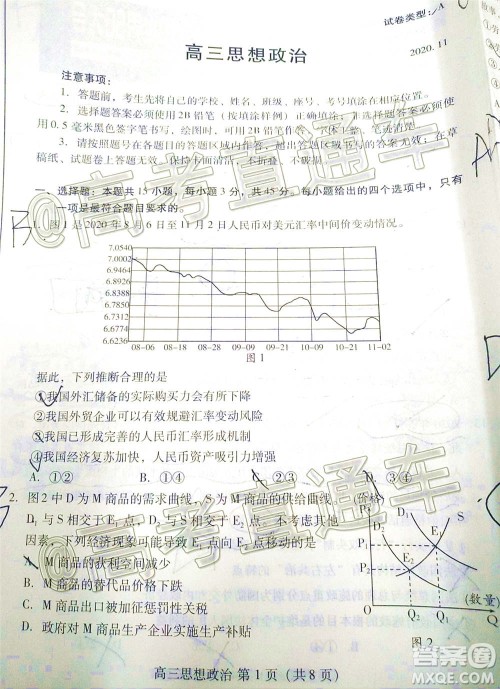 试卷类型：A
高三思想政治
2020.11
注意事项：
1. 答题前，考生先将自己的学校、姓名、班级、座号、考号填涂在
2. 选择题答案必须使用2B铅笔（按填涂样例）正确填涂；
用0.5毫米黑色签字笔书写，绘图时，可用2B铅笔作答，
3. 请按照题号在各题目的答题区域内作答，
稿纸、试题卷上答题无效。保持
一、选择题：本题共15小题，每小题3分，共45分。在每小题给出的四个选项中，只有
一项是最符合题目要求的。
1. 图1是2020年8月6日至11月2日人民币对美元汇率中间价变动情况。
7.0540
7.0000
6.9462
6.8924
6.8388
6.7850
6.7312
6.6774
6.6236
08-06 08-18 08-28 09-09 09-21 10-09 10-21 11-02
图1
据此，下列推断合理的是
①我国外汇储备的实际购买力会有所增加
②我国外贸企业可以有效规避汇率变动风险
③我国已形成完善的人民币汇率形成机制
④我国经济复苏加快，人民币资产吸引力增强
A. ①② B. ①④
2. 图2中D为M商品的需求曲线，S为M商品的供给曲线，
D₁与S相交于E₁点，D与S₁相交于E₂点。不考虑其他
因素，下列经济现象可能导致E₁向E₂点移动的是
A. M商品的获利空间减少
B. M商品的替代品价格下跌
C. M商品出口被加征惩罚性关税
D. 政府对M商品生产企业实施生产补贴
(价格)
P
D
S
P₁
E₁
P₂
E₂
Q₁
Q₂
(数量)
图2
高三思想政治 第1页（共8页）
@高考直通车
@高考直通车
作业精灵